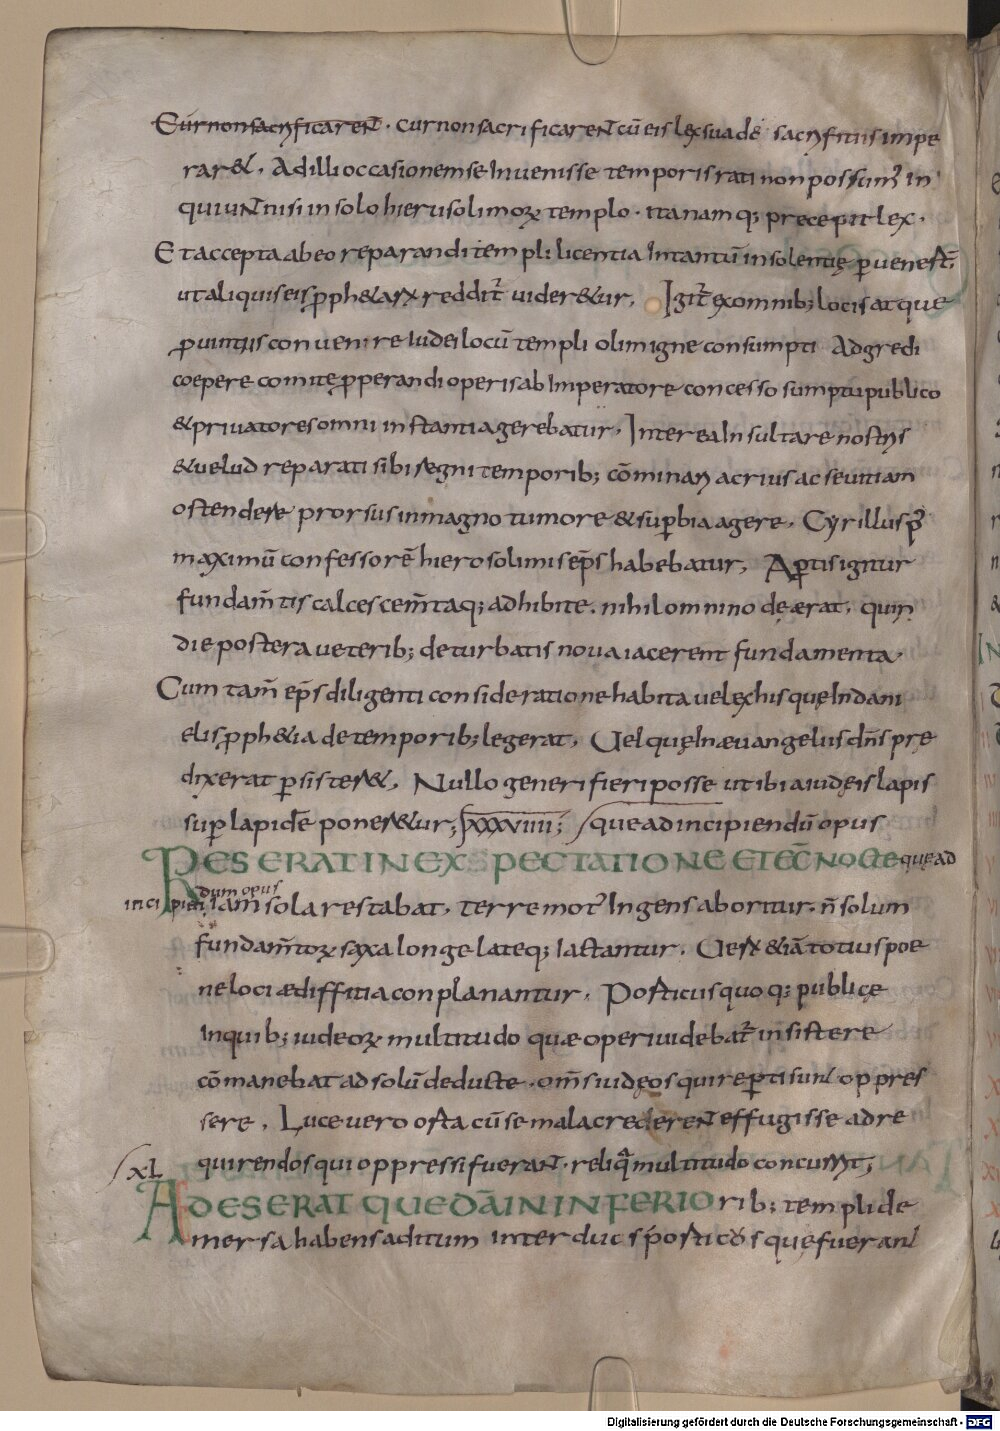 Cur non sacryficareNt · cur non sacrificareNt cū eis lex sua de sacryfitiis impe
rar& . Ad illi occasionem se Invenisse temporis rati non possum᾽ in
quiuNt nisi in solo hierusolimoꝝ templo · ita namq; precepit lex .
Et accepta ab eo reparandi templi licentia Intantū insolentię ꝑvener̄t
ut aliquis eis ꝓph&arx reddit᾽ vider&ur, Igit᾽ ex omnib; locis atque
ꝓvintiis convenire iudei locū templi olim igne consumpti Adgredi
coepere comitę ꝓperandi operis ab Imperatore concesso sumptu publico
& privatores omni instantia gerebatur, Interea Insultare nostris
& velud reparati sibi regni temporib; cōminari acrius ac sevitiam
ostendere prorsus in magno tumore & suꝑbia agere, Cyrillus p᾽
maximū confessorē hierosolimis ep̄s habebatur, Aꝑtis igitur
fundam̄tis calces cem̄taq; adhibite . nihil omnino deerat, quin
die postera veterib; deturbatis nova iacerent fundamenta
Cum tam̄ ep̄s diligenti consideratione habita vel ex his quę In dani
elis ꝓph&ia de temporib; legerat, Vel quę In ævangeliis dn̄s pre
dixerat ꝑsister&, Nullo generi fieri posse ut ibi a iudeis lapis
suꝑ lapidē poner&ur; XXXVIIII; que ad incipiendū opus
RES ERAT IN EXSPECTATIONE ET EC̄ NOCTE que ad
incipien dum opus iam sola restabat, terremot᾽ Ingens aboritur, n̄ solum
fundam̄toꝝ saxa longe lateq; Iactantur, Verx &iā totius poe
ne loci ædiffitia conplanantur, Posticus quoq; publicę
Inquib; iudeoꝝ multitudo quæ operi videbat᾽ insistere
cōmanebat ad solū deducte, om̄s iudęos qui reꝑti sunt oppres
sere, Luce vero orta cū se mala credereNt effugisse adre
quirendos qui oppressi fueraNt · reliq̄ multitudo concurrit;
XL
AEDES ERAT QUEDĀ IN INFERIOrib; templi de
mersa habens aditum inter duc s porticūs quę fuerant
Digitalisierung gefördert durch die Deutsche Forschungsgemeinschaft - DFG